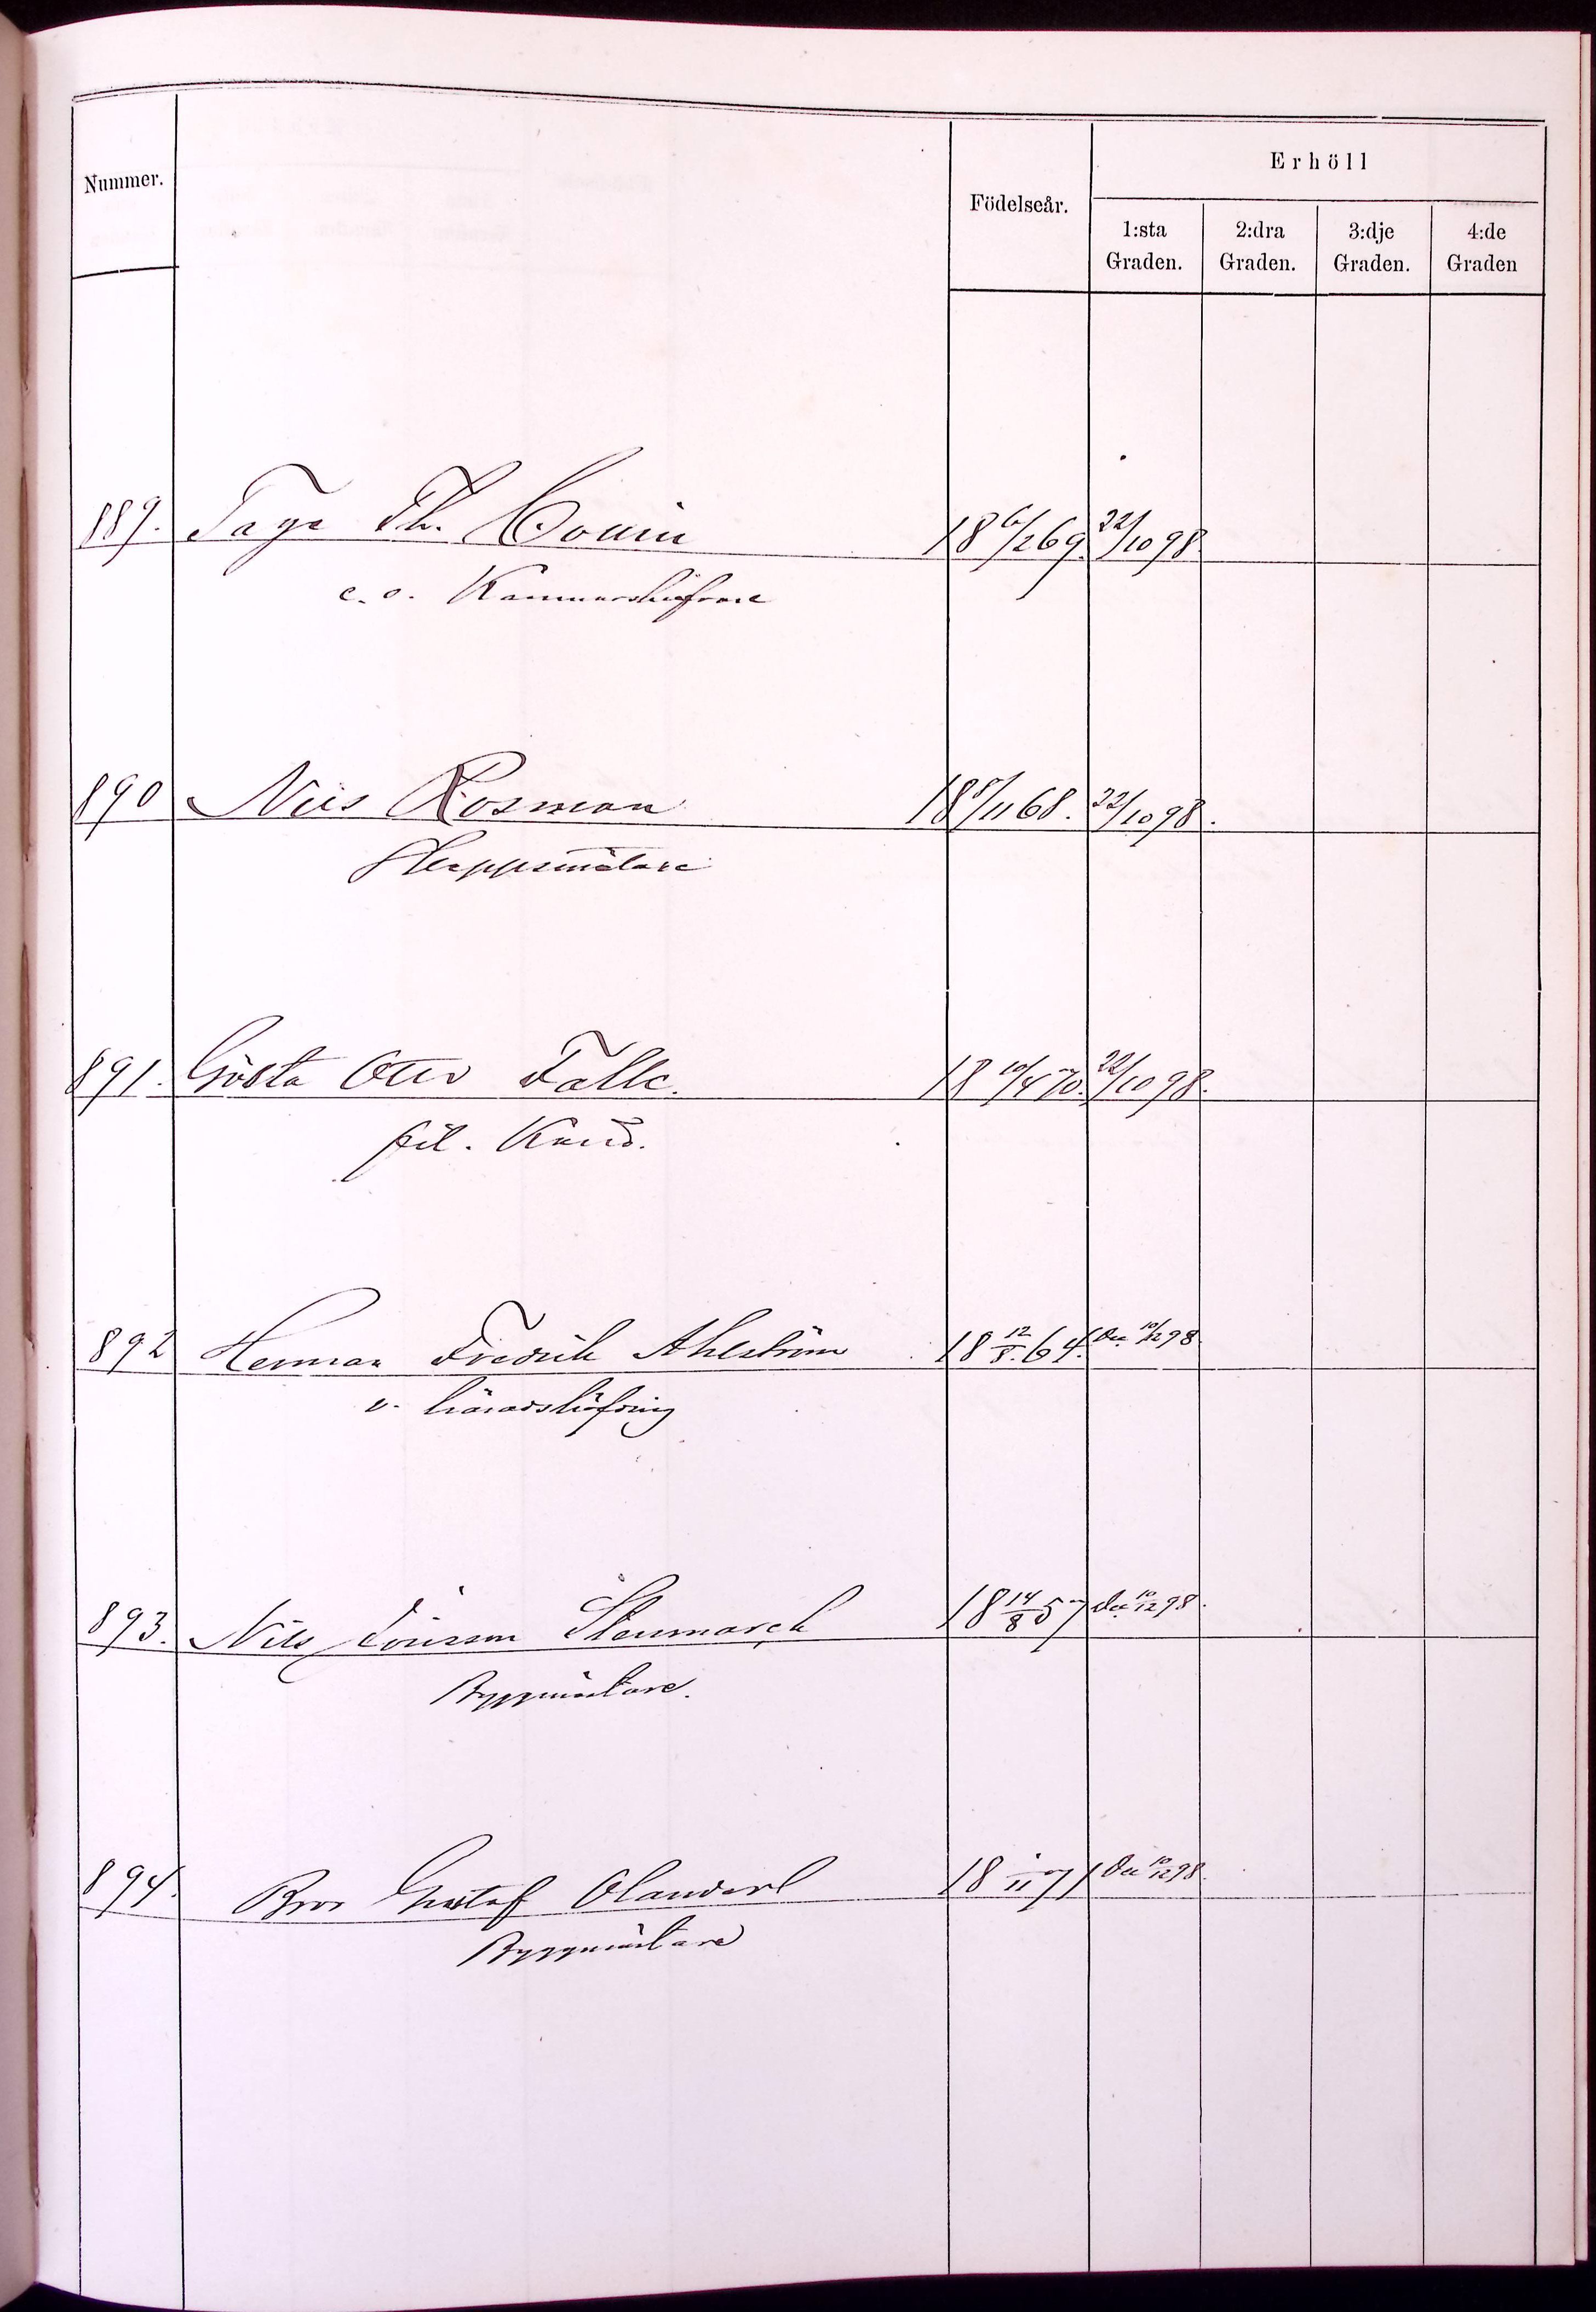 Nummer.
Födelseår.
Erhöll
1:sta Graden.
2:dra Graden.
3:dje Graden.
4:de Graden
889. Tage Th. 18 6/2 69. 22/10 98.
e. o.
890 Nils Rosman 18 8/11 68. 22/10 98.
Skeppsmätare
891. Gösta Otto Falk. 18 10/4 70. 22/10 98.
fil. Kand.
892 Herman Fredrik Ahlström 18 12/8. 64. Den 10/12 98
v. häradshöfding
893. Nils Jönsson Stenmarck 18 14/8 57 den 10/12 98.
Byggmästare.
894. Bror Gustaf Olander 71 Den 10/12 98.
Byggmästare